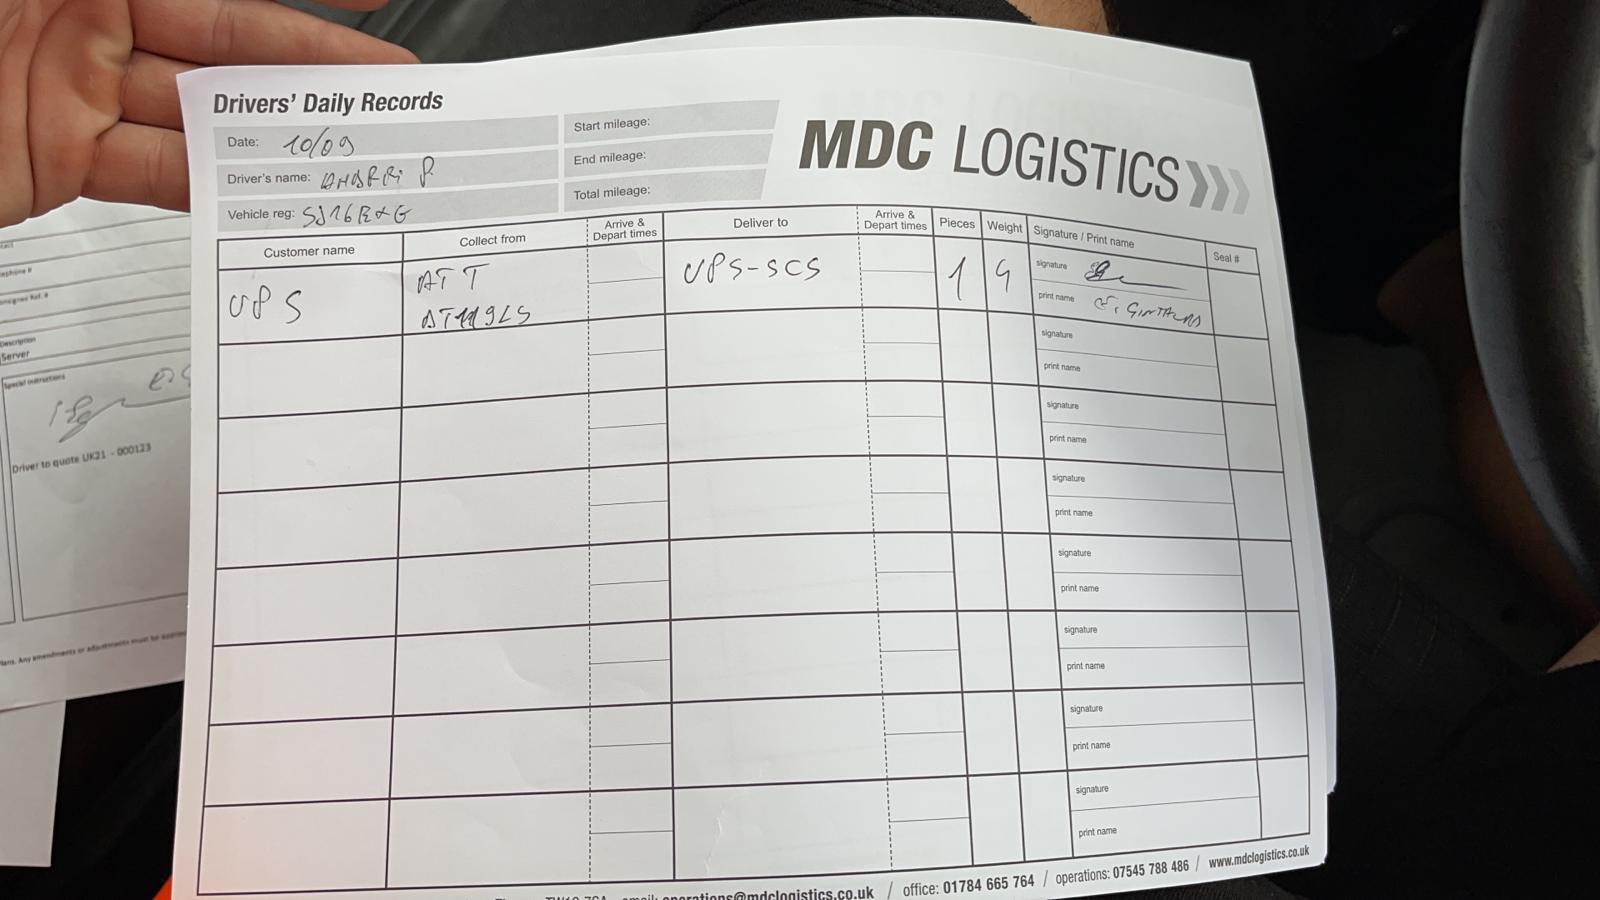 Drivers' Daily Records
Date: 10/09
Driver's name: P
Vehicle reg:
Start mileage:
End mileage:
Total mileage:
MDC LOGISTICS
Customer name
Collect from
Arrive &
Depart times
Deliver to
Arrive &
Depart times
Pieces
Weight
Signature / Print name
Seal #
UPS
ATT
UPS-SCS
1
signature
print name
signature
print name
signature
print name
signature
print name
signature
print name
signature
print name
signature
print name
signature
print name
operations@mdclogistics.co.uk / office: 01784 665 764 / operations: 07545 788 486 / www.mdclogistics.co.uk
Description
Server
Special instructions
Driver to quote UK21 - 000123
Any amendments or adjustments must be